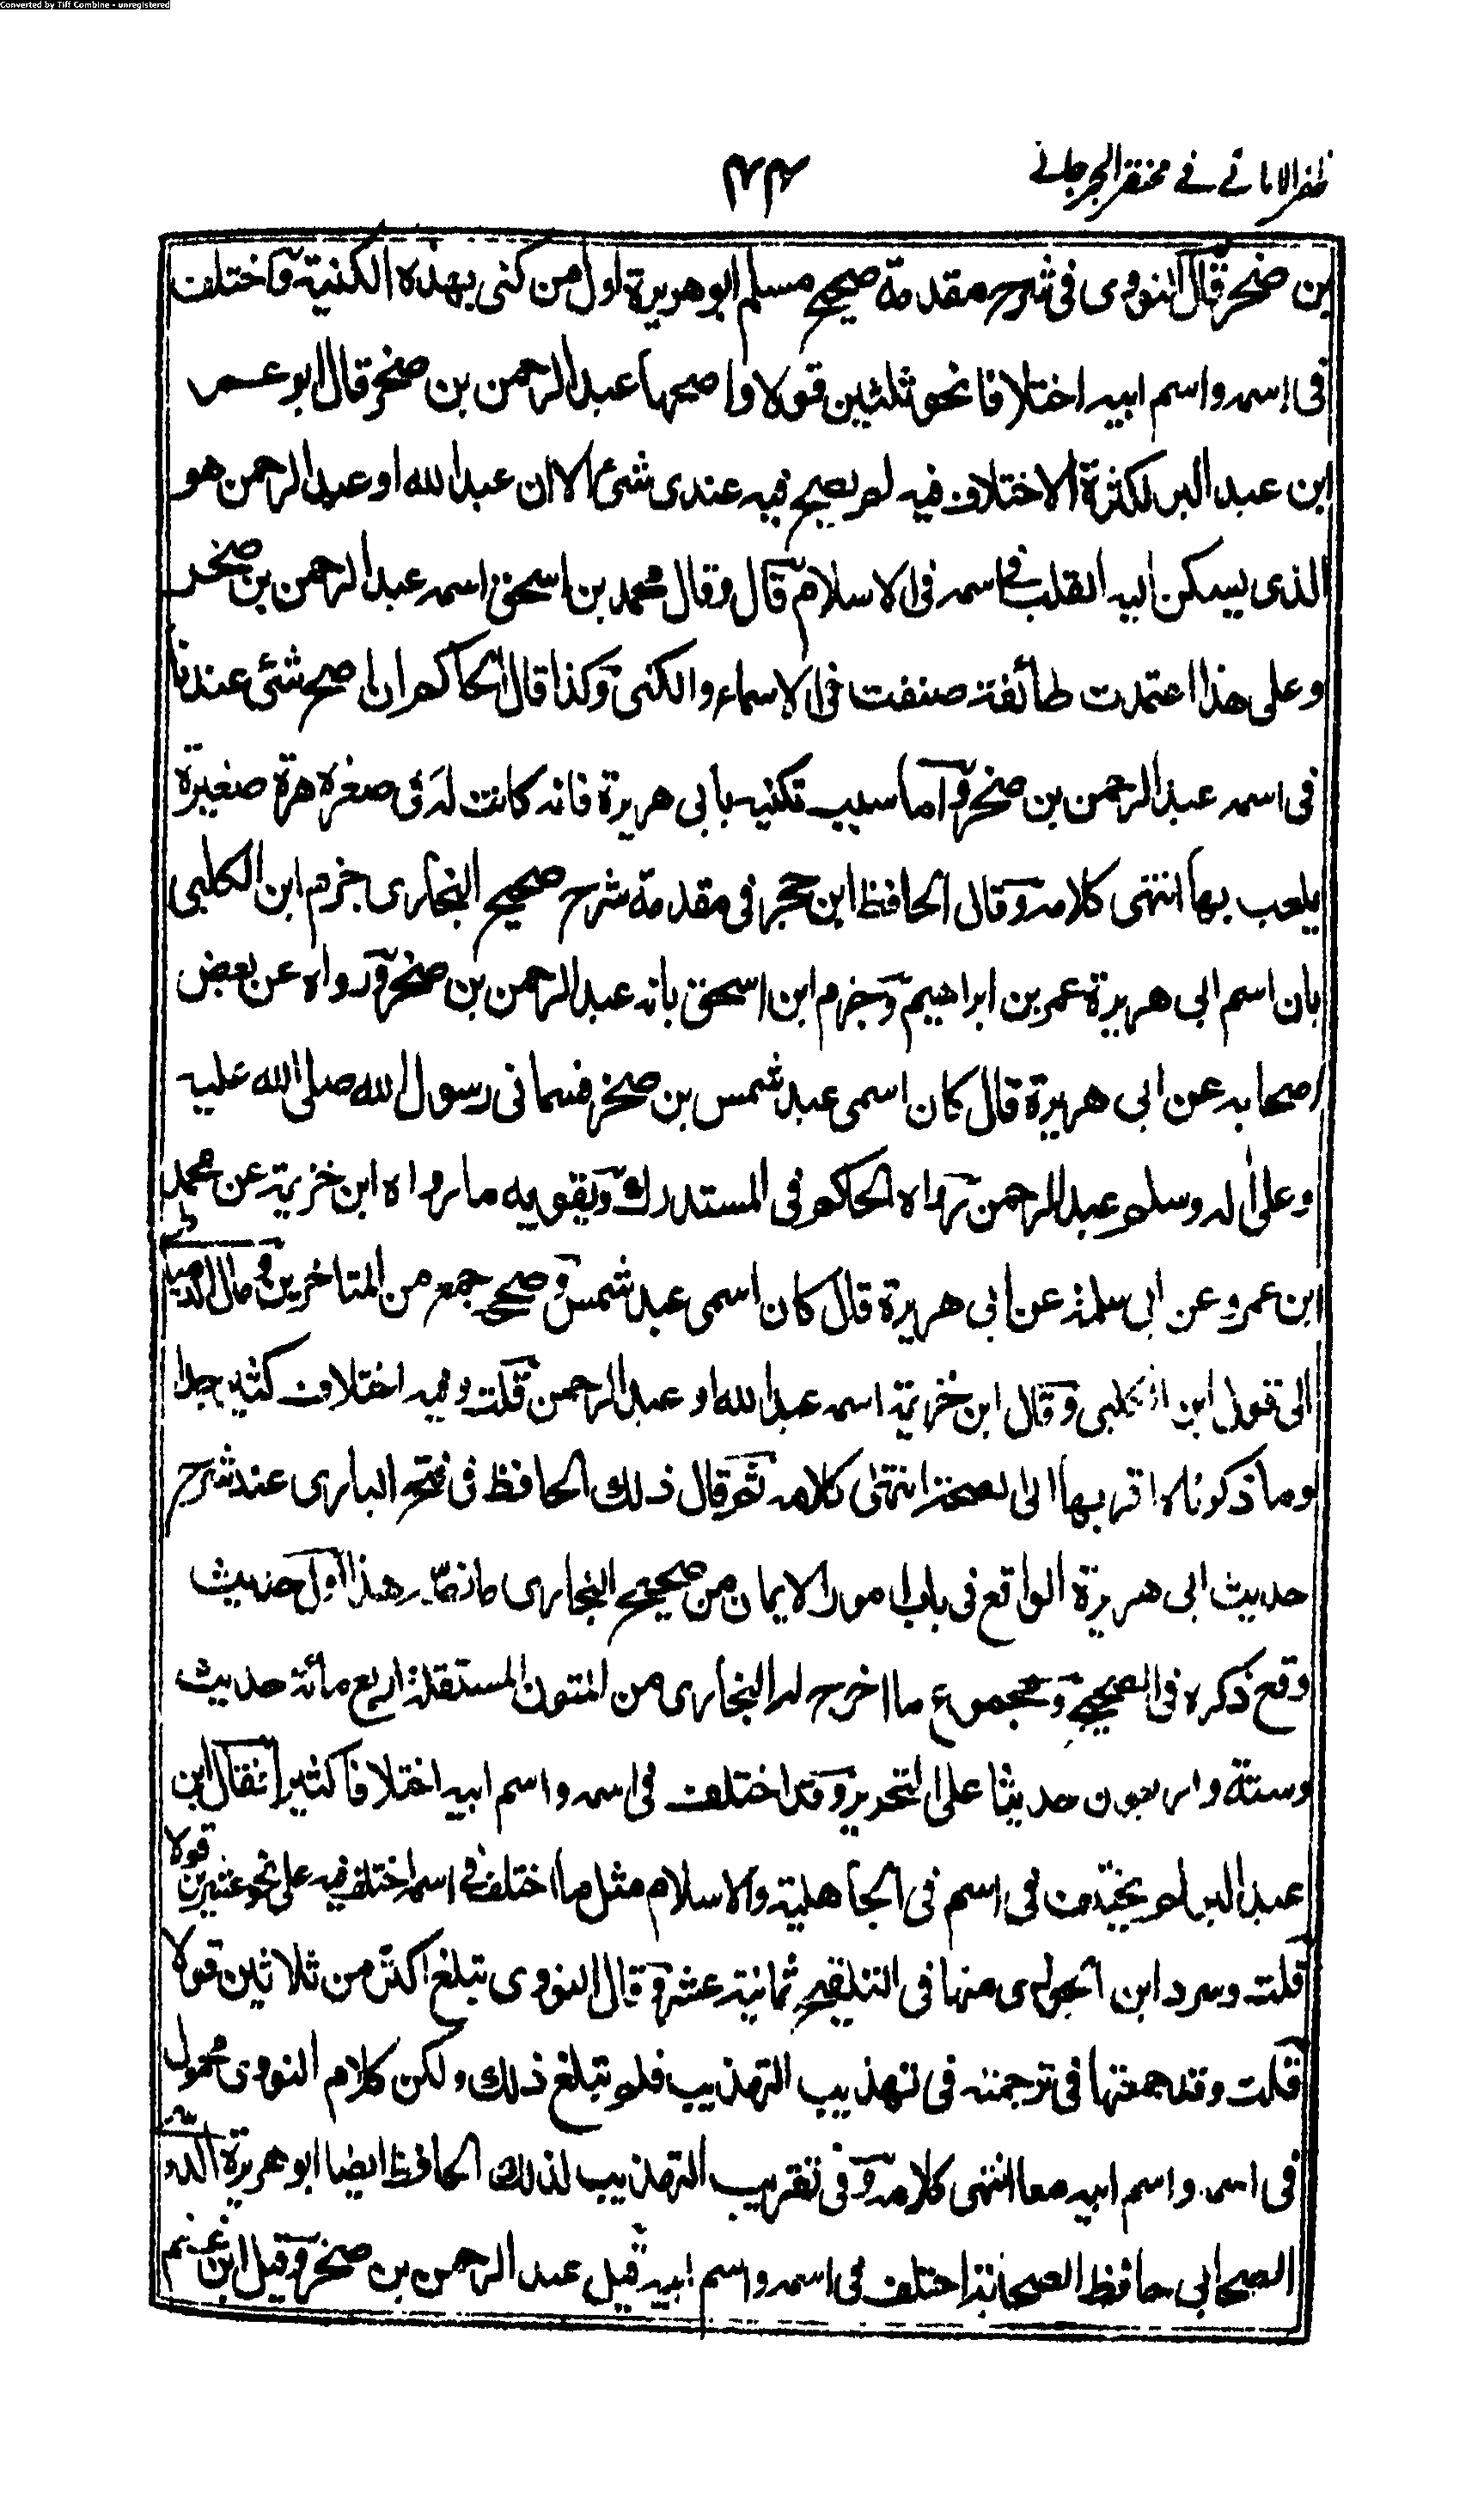 Converted by Tiff Combine - unregistered
ظفر الامانے فے مختصر الجرجانے
٤٤
بن صخر قال النووى فى شرح مقدمة صحيح مسلم ابو هريرة اول من كنى بهذه الكنية واختلف
فى اسمه واسم ابيه اختلافا نحو ثلثين قولا واصحها عبد الرحمن بن صخر قال ابو عمر
ابن عبد البر لكثرة الاختلاف فيه لم يصح فيه عندى شئ الا ان عبد الله او عبد الرحمن هو
الذى يسكن اليه القلب فى اسمه فى الاسلام قال وقال محمد بن اسحق اسمه عبد الرحمن بن صخر
وعلى هذا اعتمدت طائفة صنفت فى الاسماء والكنى وكذا قال الحاكم ان اصح شئ عندنا
فى اسمه عبد الرحمن بن صخر واما سبب تكنيه بابى هريرة فانه كانت له فى صغره هرة صغيرة
يلعب بها انتهى كلامه وقال الحافظ ابن حجر فى مقدمة شرح صحيح البخارى جزم ابن الكلبى
بان اسم ابى هريرة عمر بن ابراهيم وجزم ابن اسحق بانه عبد الرحمن بن صخر ورواه عن بعض
اصحابه عن ابى هريرة قال كان اسمى عبد شمس بن صخر فسمانى رسول الله صلى الله عليه
وعلى اله وسلم عبد الرحمن رواه الحاكم فى المستدرك ويقويه ما رواه ابن خزيمة عن محمد
ابن عمرو عن ابى سلمة عن ابى هريرة قال كان اسمى عبد شمس وصحح جمع من المتاخرين ومال الدمياطى
الى قول ابن الكلبى وقال ابن خزيمة اسمه عبد الله او عبد الرحمن قلت وفيه اختلاف كثير جدا
وما ذكرناه اقربها الى الصحة انتهى كلامه ثم قال ذلك الحافظ فى فتح البارى عند شرح
حديث ابى هريرة الواقع فى باب امور الايمان من صحيح البخارى ما نصه هذا اول حديث
وقع ذكره فى الصحيح ومجموع ما اخرج له البخارى من المتون المستقلة اربع مائة حديث
وستة واربعون حديثا على التحرير وقد اختلف فى اسمه واسم ابيه اختلافا كثيرا فقال ابن
عبد البر لم يختلف فى اسم فى الجاهلية والاسلام مثل ما اختلف فى اسمه اختلف فيه على نحو عشرين قولا
قلت وسرد ابن الجوزى منها فى التلقيح ثمانية عشر وقال النووى تبلغ اكثر من ثلاثين قولا
قلت وقد جمعتها فى ترجمته فى تهذيب التهذيب فلم تبلغ ذلك ولكن كلام النووى محمول
فى اسمه واسم ابيه معا انتهى كلامه وفى تقريب التهذيب لذلك الحافظ ايضا ابو هريرة الدوسى
الصحابى حافظ الصحابة اختلف فى اسمه واسم ابيه قيل عبد الرحمن بن صخر وقيل ابن غنم